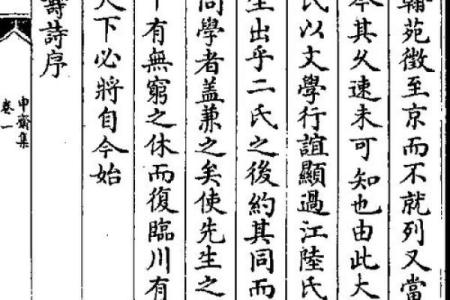 翰苑徵至京而不就列又當
其久速未可知也由此大
氏以文學行誼顯過江陸氏
生出乎二氏之後約其同而
同學者盖兼之矣使先生之
下有無窮之休而復臨川有
下必將自今始
壽詩序
申齋集
卷一